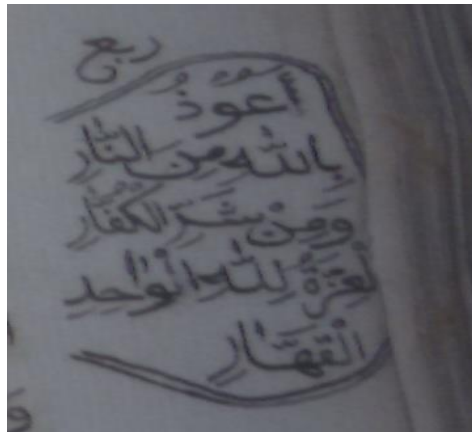 ربع
أَعُوذُ
بِاللَّهِ مِنَ النَّارِ
وَمِنْ شَرِّ الْكُفَّارِ
لْعِزَّةُ لِلَّهِ الْوَاحِدِ
الْقَهَّارِ